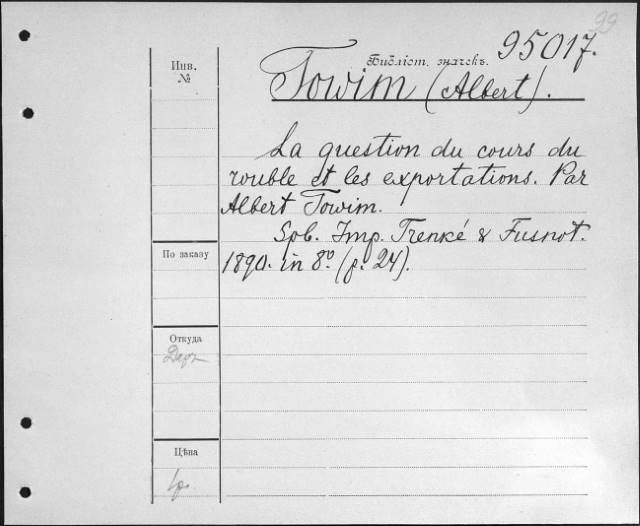 99
Библіот. значекъ. 95017.
Инв.
№
Towim (Albert).
La question du cours du
rouble et les exportations. Par
Albert Towim.
Spb. Imp. Trenké & Fusnot.
1890. in 8º. (p. 24).
По заказу
Откуда
Даръ
Цѣна
1р.